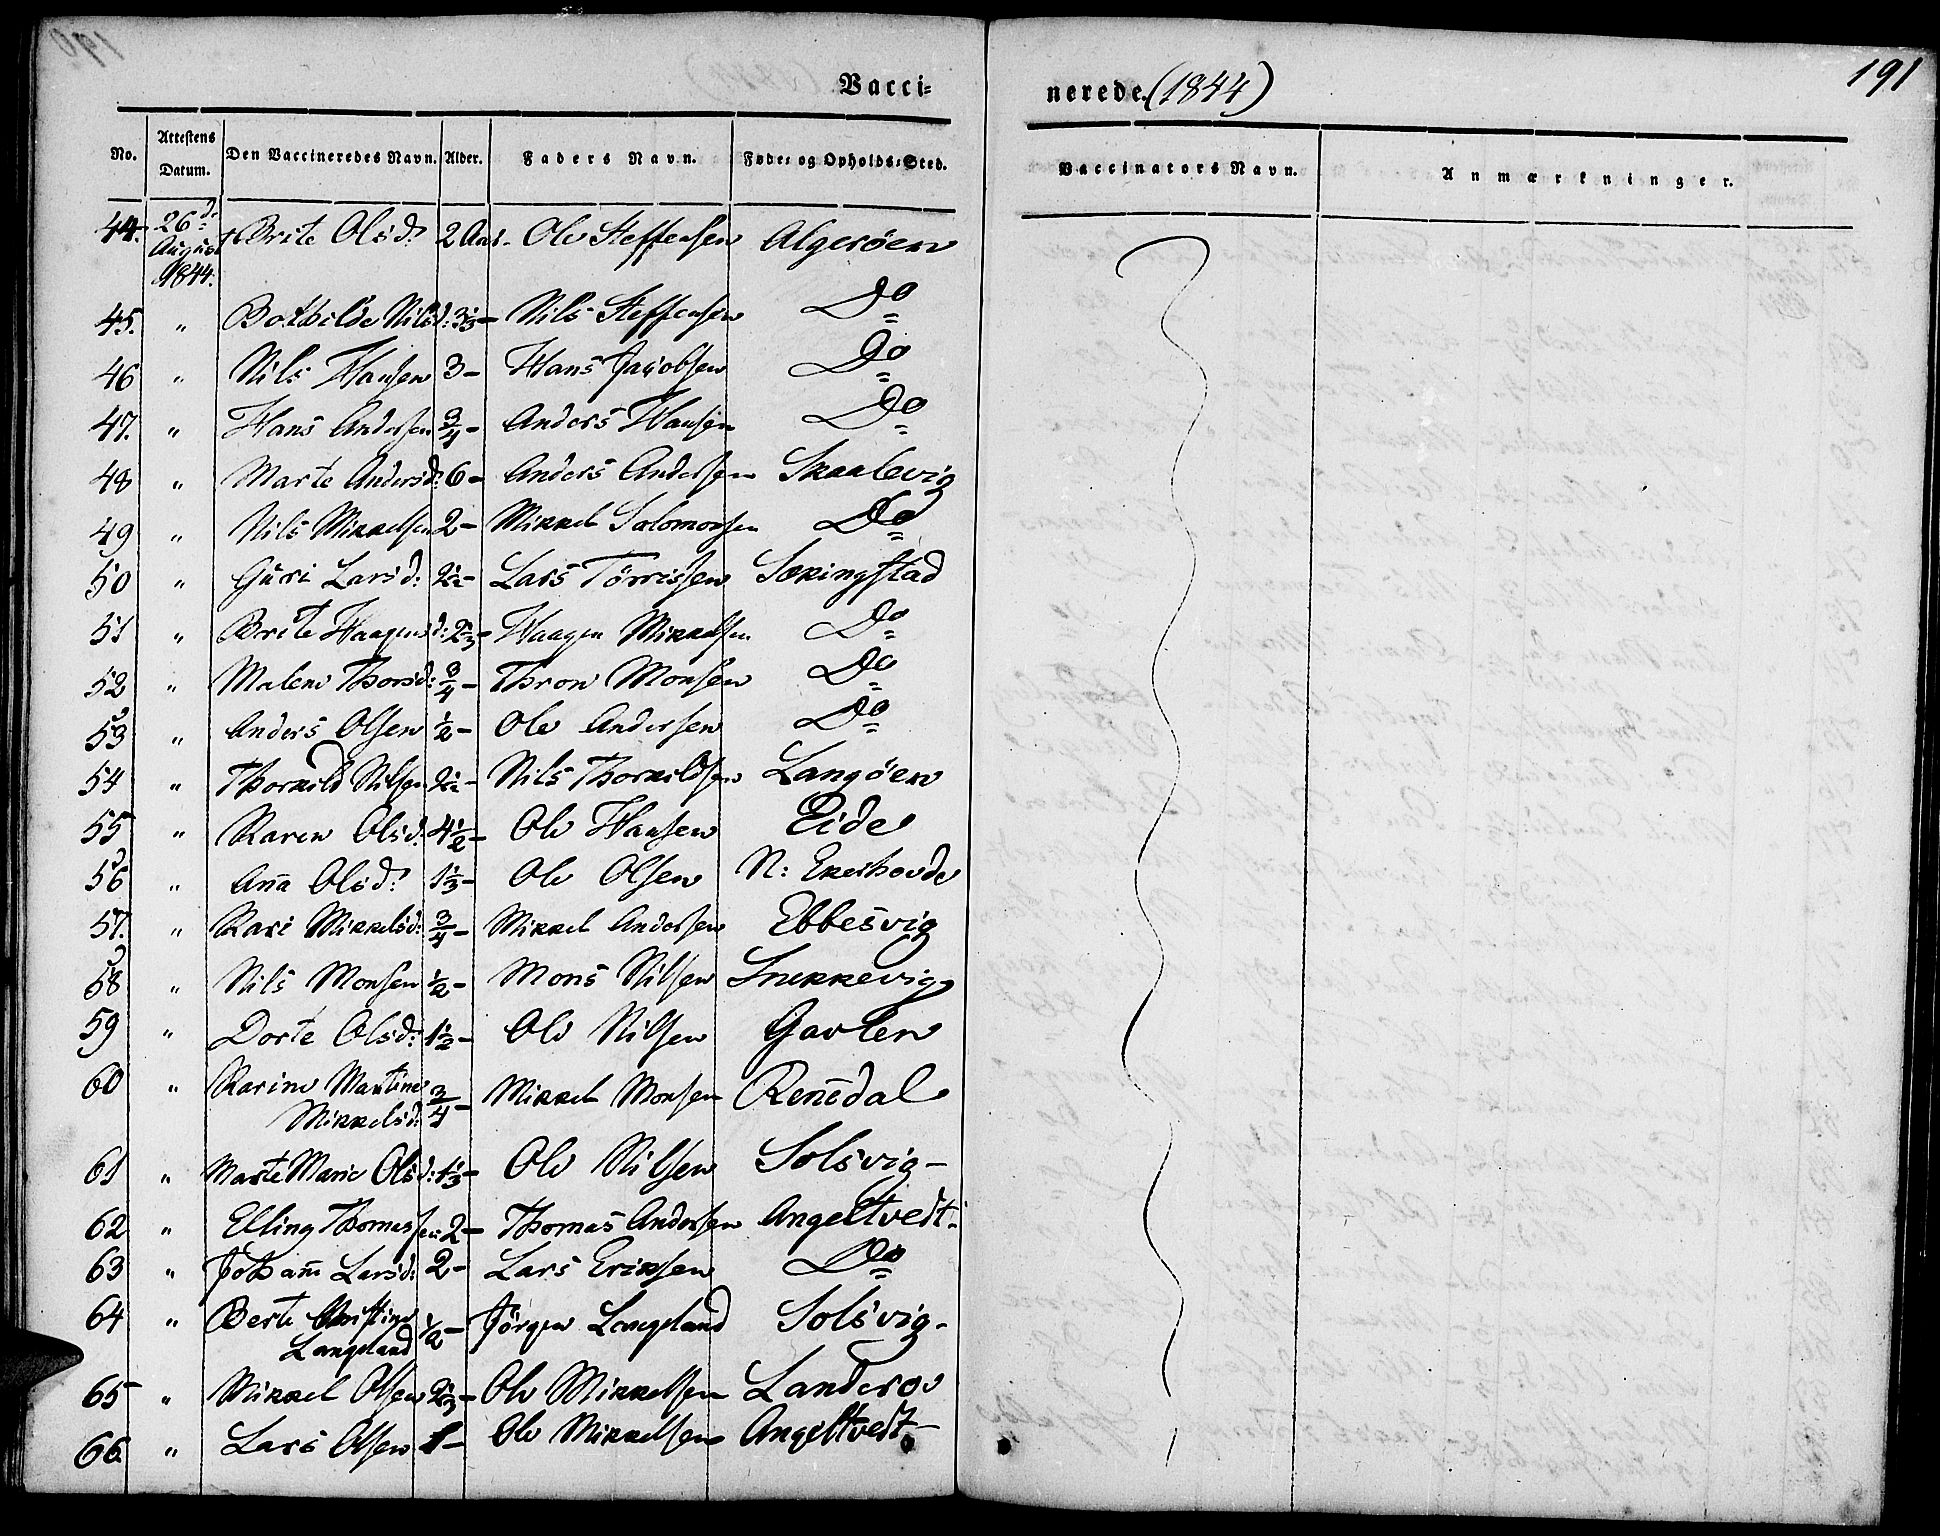 Vacci=
nerede. (1844)
191
No. Attestens Datum. Den Vaccineredes Navn. Alder. Faders Navn. Føde= og Opholds=Sted. Vaccinators Navn. Anmærkninger.
44. 26d: August 1844. Brite Olsd: 2 Aar- Ole Steffensen Algerøen
45. " Bothilde Nilsd: 3⅓- Nils Steffensen Do
46 " Nils Hansen 3- Hans Jacobsen Do
47. " Hans Andersen ¾- Anders Hansen Do
48 " Marte Andersd: 6- Anders Andersen Skaalevig
49 " Nils Mikkelsen 2- Mikkel Salomonsen Do
50 " Guri Larsd: 2½- Lars Tørrissen Sækingstad
51 " Brite Haagensd: 2⅔- Haagen Mikkelsen Do
52 " Malene Thorsd: ¾- Thron Monsen Do
53 " Anders Olsen ½- Ole Andersen Do
54 " Thorkild Nilsen 2½- Nils Thorkildsen Langøen
55 " Karen Olsd: 4½- Ole Hansen Eide
56 " Anna Olsd: 1⅓- Ole Olsen N: Ekerhovde
57. " Kari Mikkelsd: ¾- Mikkel Andersen Ebbesvig
58 " Nils Monsen ½- Mons Nilsen Snekkevig
59 " Dorte Olsd: 1½- Ole Nilsen Gavlen
60 " Karine Martine
Mikkelsd: ¾- Mikkel Monsen Rennedal
61 " Marte Marie Olsd: 1⅓- Ole Nilsen Solsvig-
62 " Elling Thomassen 2- Thomas Andersen Angeltvedt.
63 " Johann Larsd: 2- Lars Eriksen Do
64 " Berte Christine
Langeland ½- Jørgen Langeland Solsvig-
65 " Mikkel Olsen 2⅓- Ole Mikkelsen Landeroe
66. " Lars Olsen 1- Ole Mikkelsen Angeltvedt-